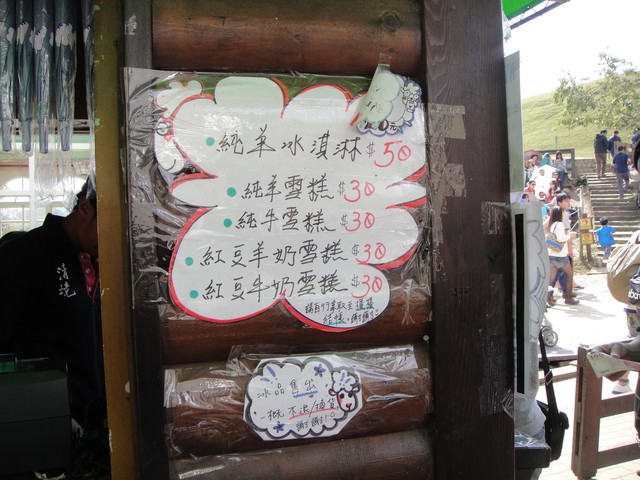 純羊冰淇淋 $50
純羊雪糕 $30
純牛雪糕 $30
紅豆羊奶雪糕 $30
紅豆牛奶雪糕 $30
請自行拿取至櫃檯
結帳，謝謝！
冰品售出
一概不退/換貨
謝謝！
清境